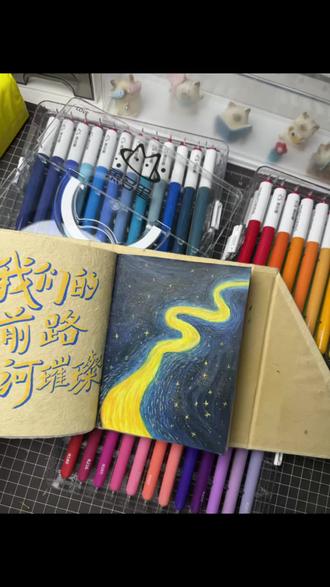 我们的
前路
河璀璨